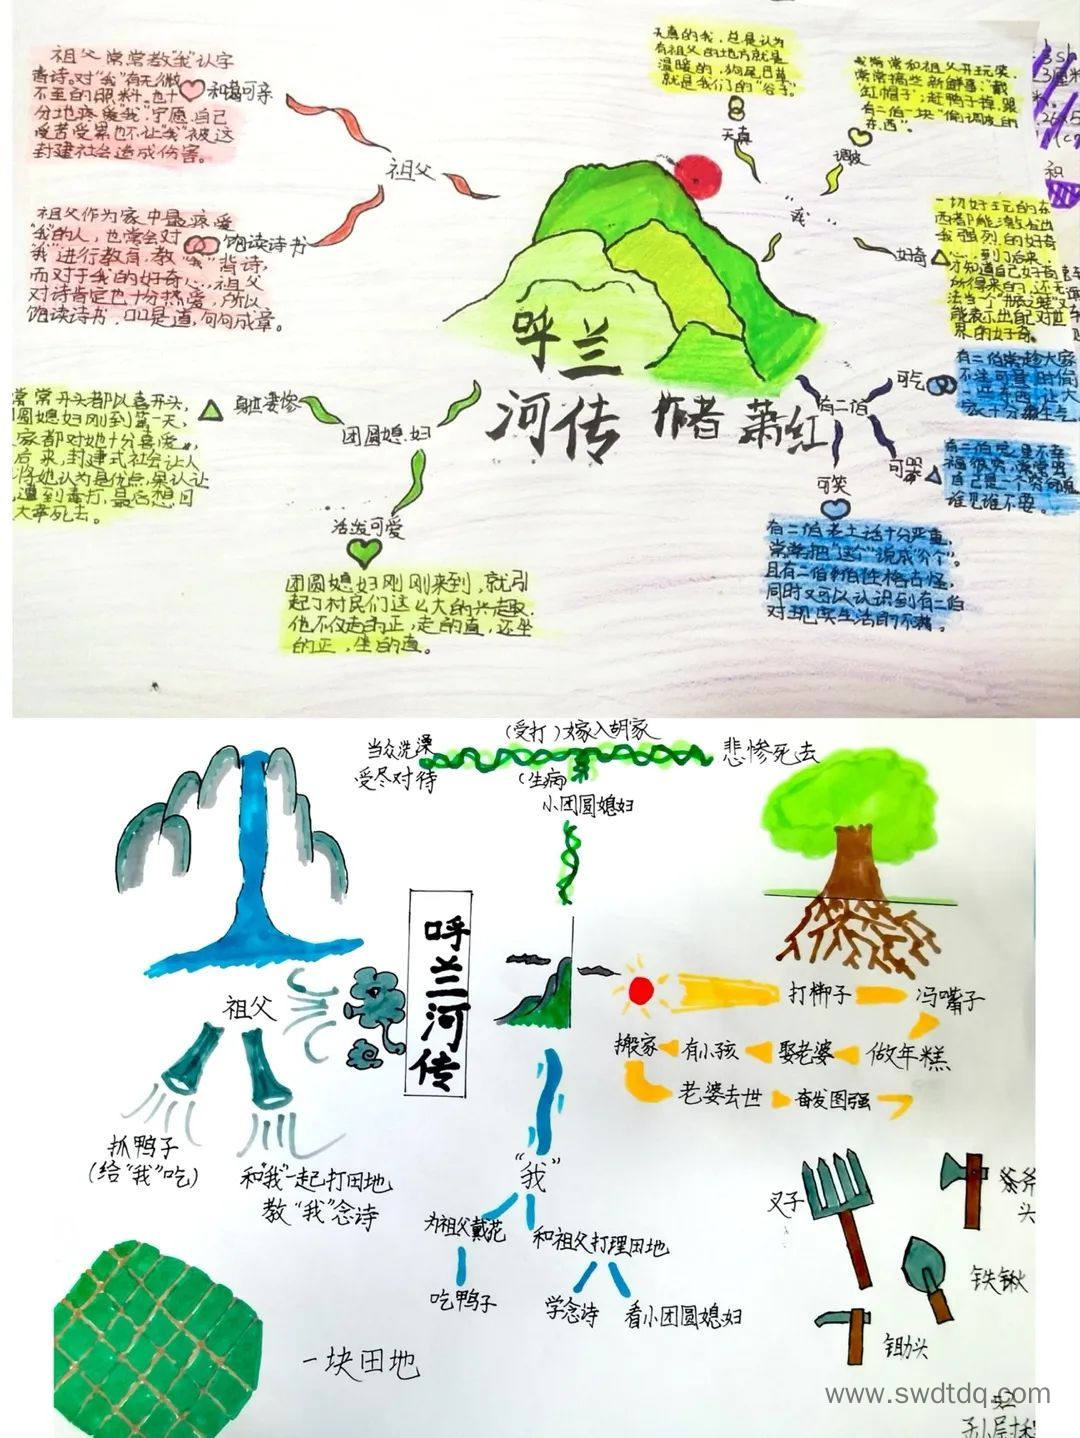 祖父常常教"我"认字
背诗。对"我"有无微
不至的照料。也十
分地疼爱"我"宁愿自己
受苦受累也不让"我"被这
封建社会造成伤害。
和蔼可亲
祖父
祖父作为家中最疼爱
"我"的人，也常会对
"我"进行教育，教"我"背诗，
而对于我的好奇心，祖父
对诗肯定也十分热爱，所以
饱读诗书，口口是道，句句成章。
饱读诗书
天真的我，总是认为
有祖父的地方就是
温暖的，狗尾巴草
就是我们的"谷子"。
天真
我常常和祖父开玩笑，
常常搞些新鲜事："戴
红帽子"；赶鸭子掉，跟
有二伯一块"偷调皮的
东西"。
调皮
"我"
一切好玩的东
西都能激发出
我强烈的好奇
心，到了后来，
才知道自己好奇
所得来的，还无
能表示出自己对世
界的好奇。
好奇
呼兰
河传 作者 萧红
常常开头都以喜开头，
圆媳妇刚到第一天，
家都对她十分喜爱，
后来，封建式社会让人
遭到毒打，最后想回
大幸死去。
身世凄惨
团圆媳妇
活泼可爱
团圆媳妇刚刚来到，就引
起了村民们这么大的兴趣。
他不仅走的正，走的直，还坐
的正，坐的直。
有二伯
可气
有二伯常趁大家
可哭
自己是一个穷
谁见谁不要。
可笑
有二伯老土话十分严重，
常常把"这个"说成"介个"。
且有二伯的性格古怪，
同时又可以认识到有二伯
对现实生活的不满。
当众洗澡
受尽对待
(受打)嫁入胡家
(生病)
悲惨死去
小团圆媳妇
呼兰河传
祖父
抓鸭子
(给"我"吃)
和"我"一起打田地
教"我"念诗
打梆子
冯嘴子
搬家
有小孩
娶老婆
做年糕
老婆去世
奋发图强
"我"
为祖父戴花
和祖父打理田地
吃鸭子
学念诗
看小团圆媳妇
叉子
斧
头
铁锹
锄头
一块田地
www.swdtdq.com